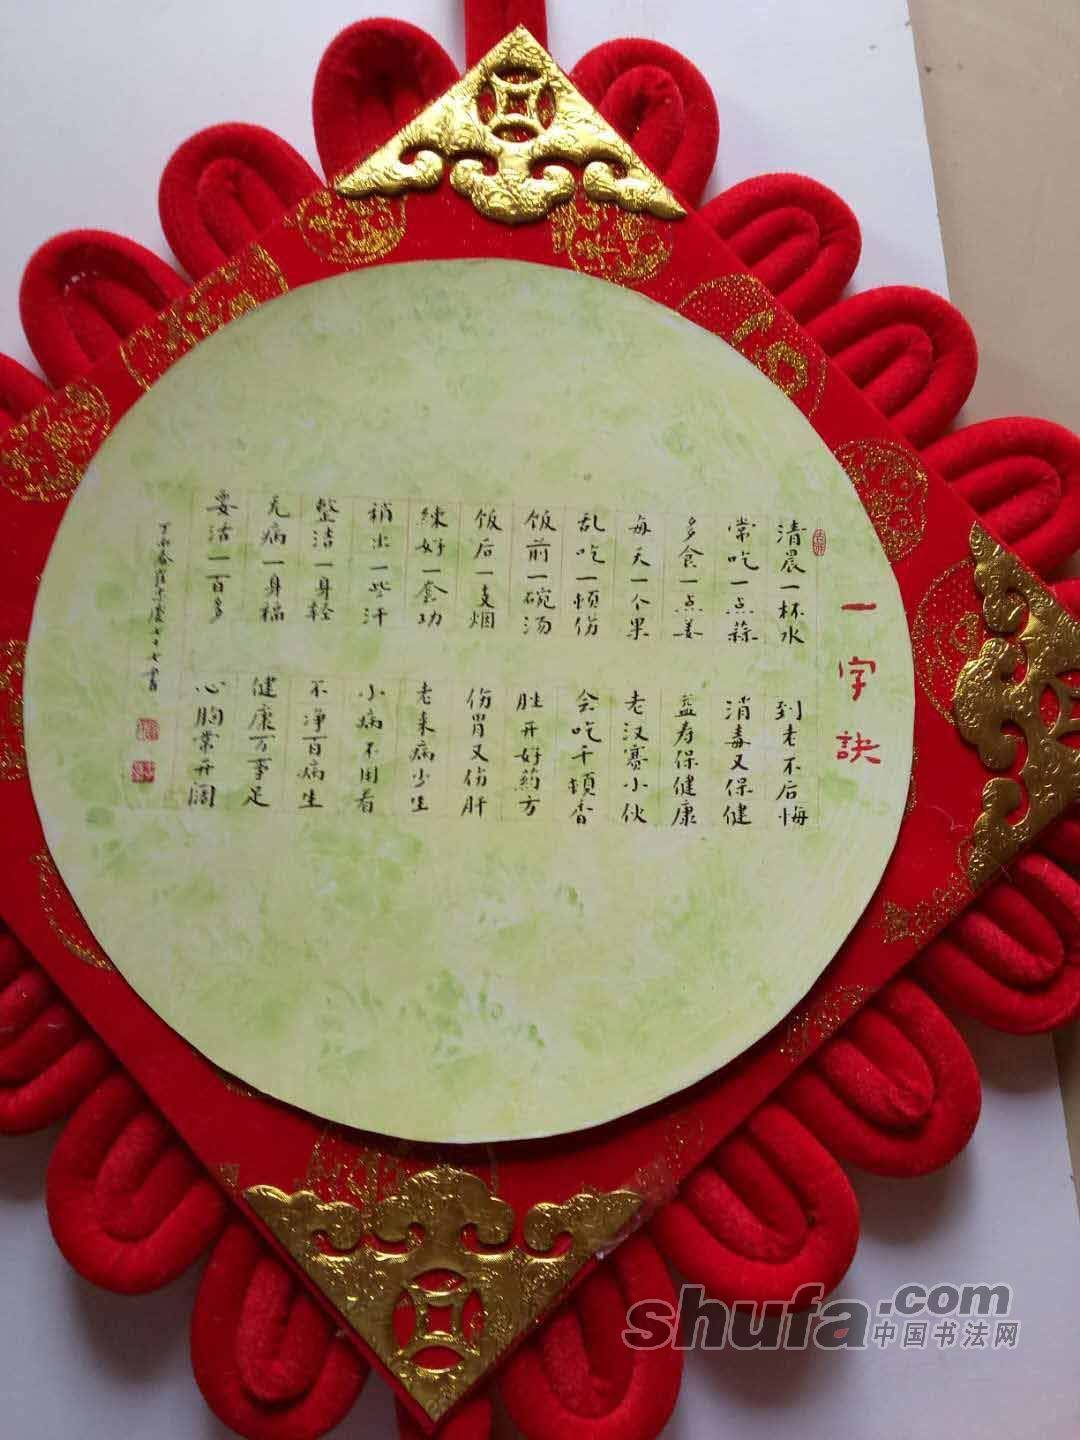 一字诀
清晨一杯水 到老不后悔
常吃一点蒜 消毒又保健
多食一点姜 益寿保健康
每天一个果 老汉赛小伙
乱吃一顿伤 会吃千顿香
饭前一碗汤 胜开好药方
饭后一支烟 伤胃又伤肝
练好一套功 老来病少生
稍出一些汗 小病不用看
整洁一身轻 不净百病生
无病一身福 健康万事足
要活一百多 心胸常开阔
丁酉春 七十七书
shufa.com
中国书法网